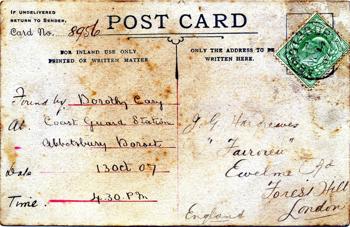 IF UNDELIVERED
RETURN TO SENDER,
Card No. 8956
POST CARD
FOR INLAND USE ONLY.
PRINTED OR WRITTEN MATTER
ONLY THE ADDRESS TO BE
WRITTEN HERE.
Found by. Dorothy Cary
At. Coast Guard Station
Abbotsbury Dorset
Date 13 Oct 07
Time. 4.30. P.M
J. G. Hargreaves
"Fairview"
Ewelme Rd
Forest Hill
London
England